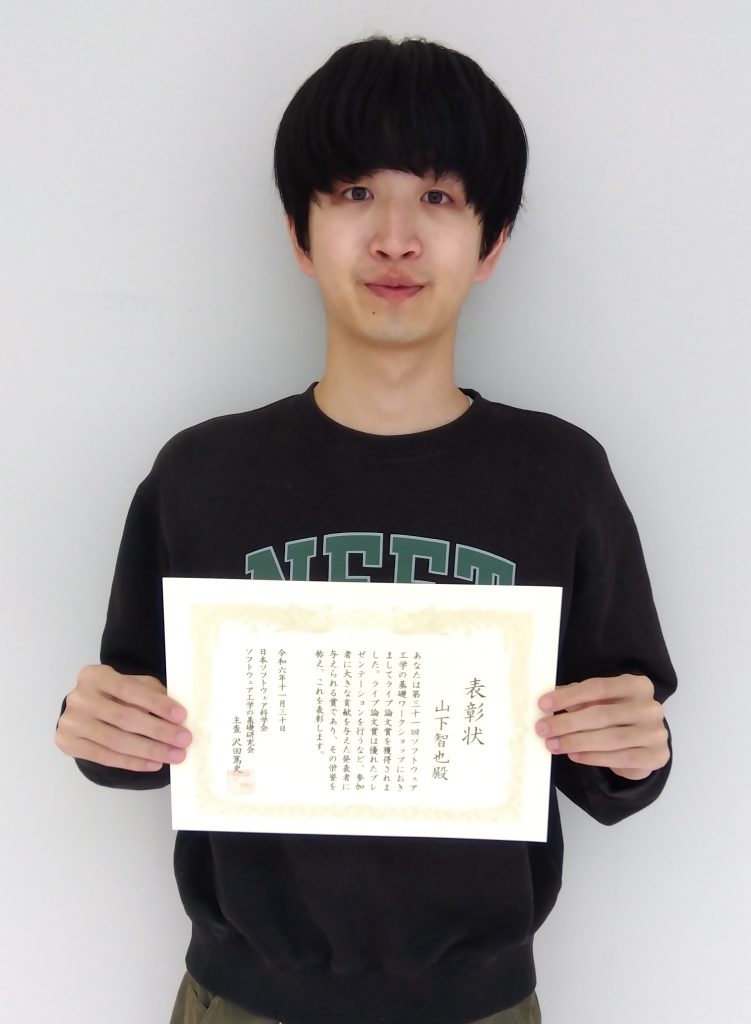 NEET
表彰状
山下智也殿
あなたは第三十一回ソフトウェア
工学の基礎ワークショップにおき
ましてライブ論文賞を獲得されま
した。ライブ論文賞は優れたプレ
ゼンテーションを行うなど、参加
者に大きな貢献を与えた発表者に
与えられる賞であり、その栄誉を
称え、これを表彰します。
令和六年十一月三十日
日本ソフトウェア科学会
ソフトウェア工学の基礎研究会
主査 沢田篤史